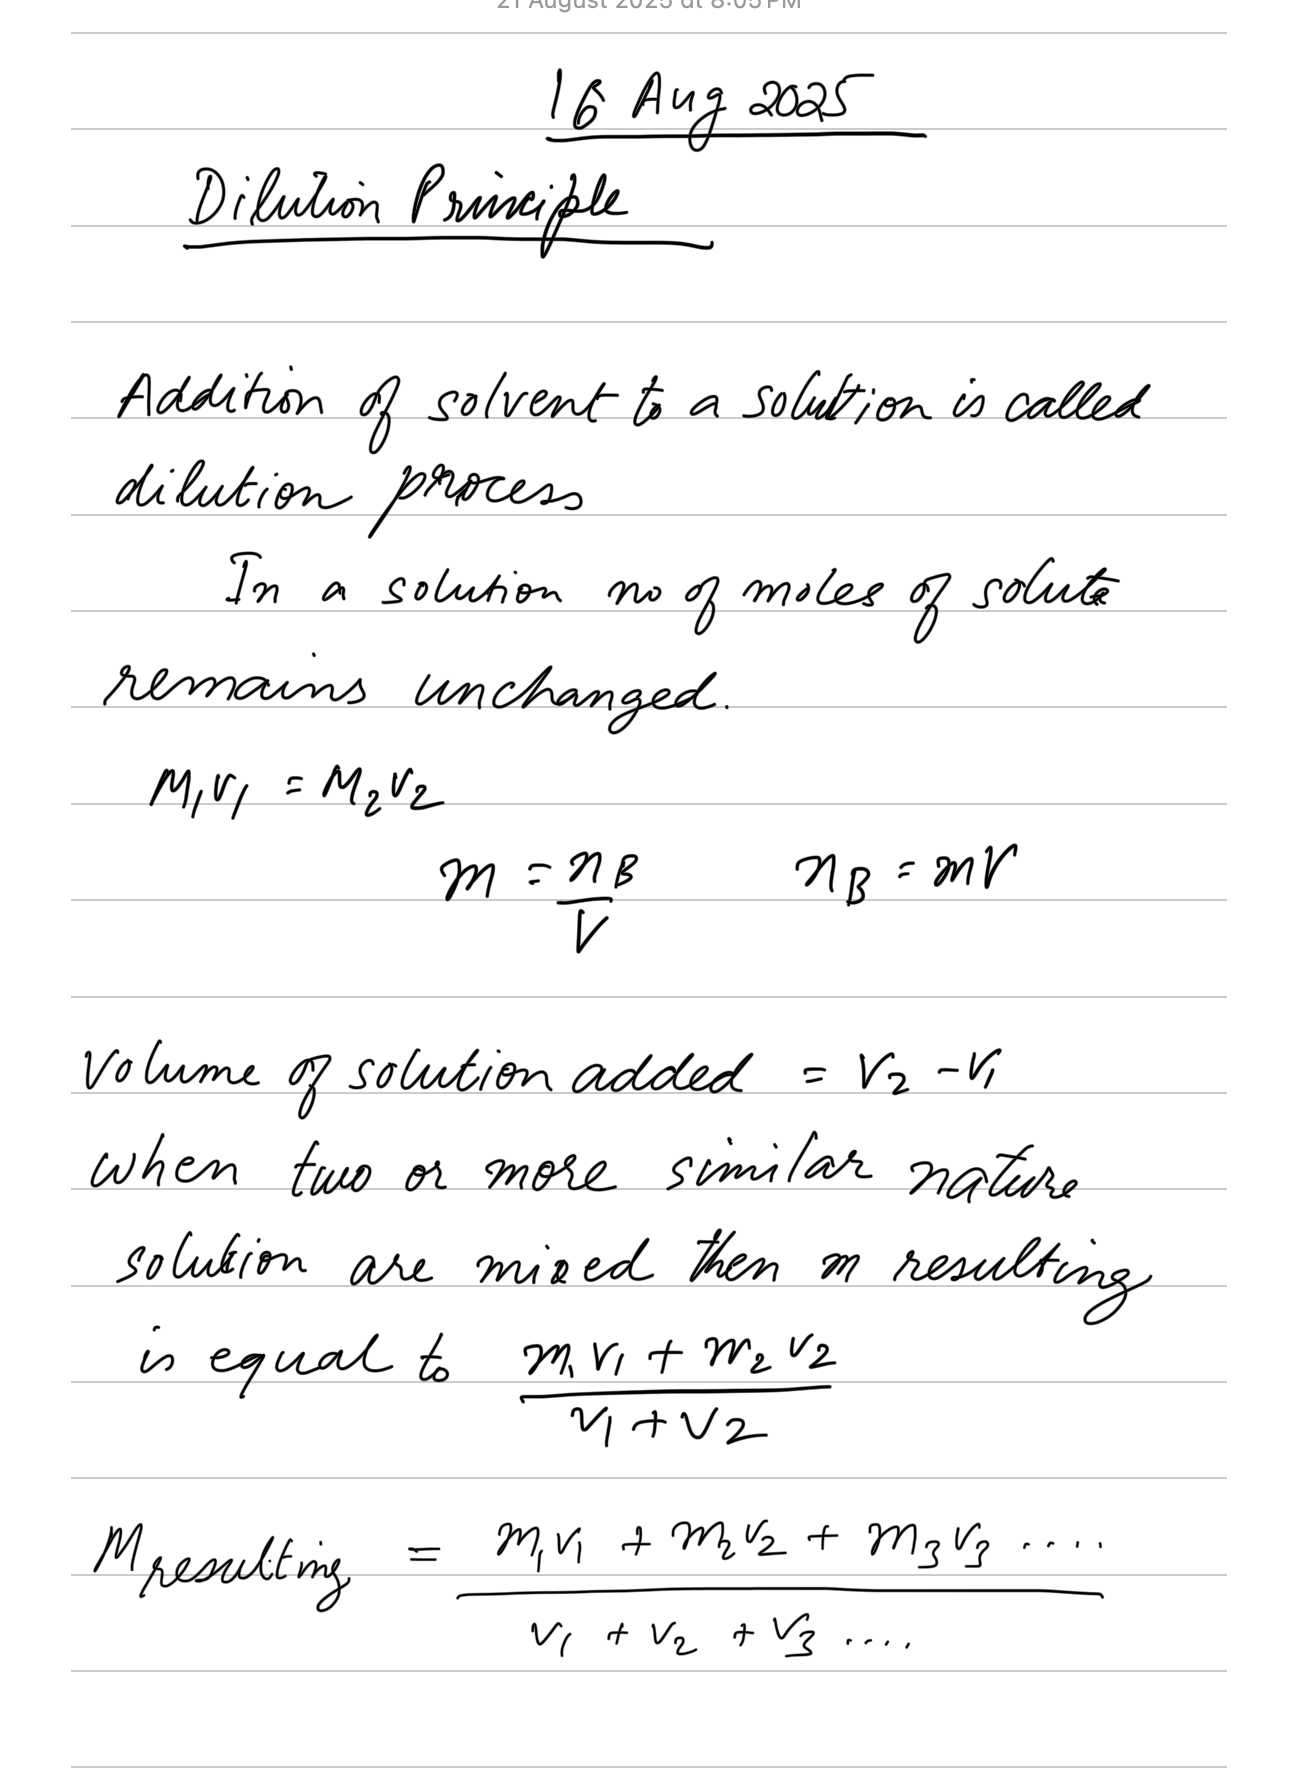 21 August 2025 at 8:05 PM
16 Aug 2025
Dilution Principle
Addition of solvent to a solution is called
dilution process
In a solution no of moles of solute
remains unchanged.
M₁V₁ = M₂V₂
m = n_B/V    n_B = mV
Volume of solution added = V₂ - V₁
when two or more similar nature
solution are mixed then m resulting
is equal to (m₁V₁ + m₂V₂)/(V₁ + V₂)
M resulting = (m₁V₁ + m₂V₂ + m₃V₃ ....)/(V₁ + V₂ + V₃ ....)